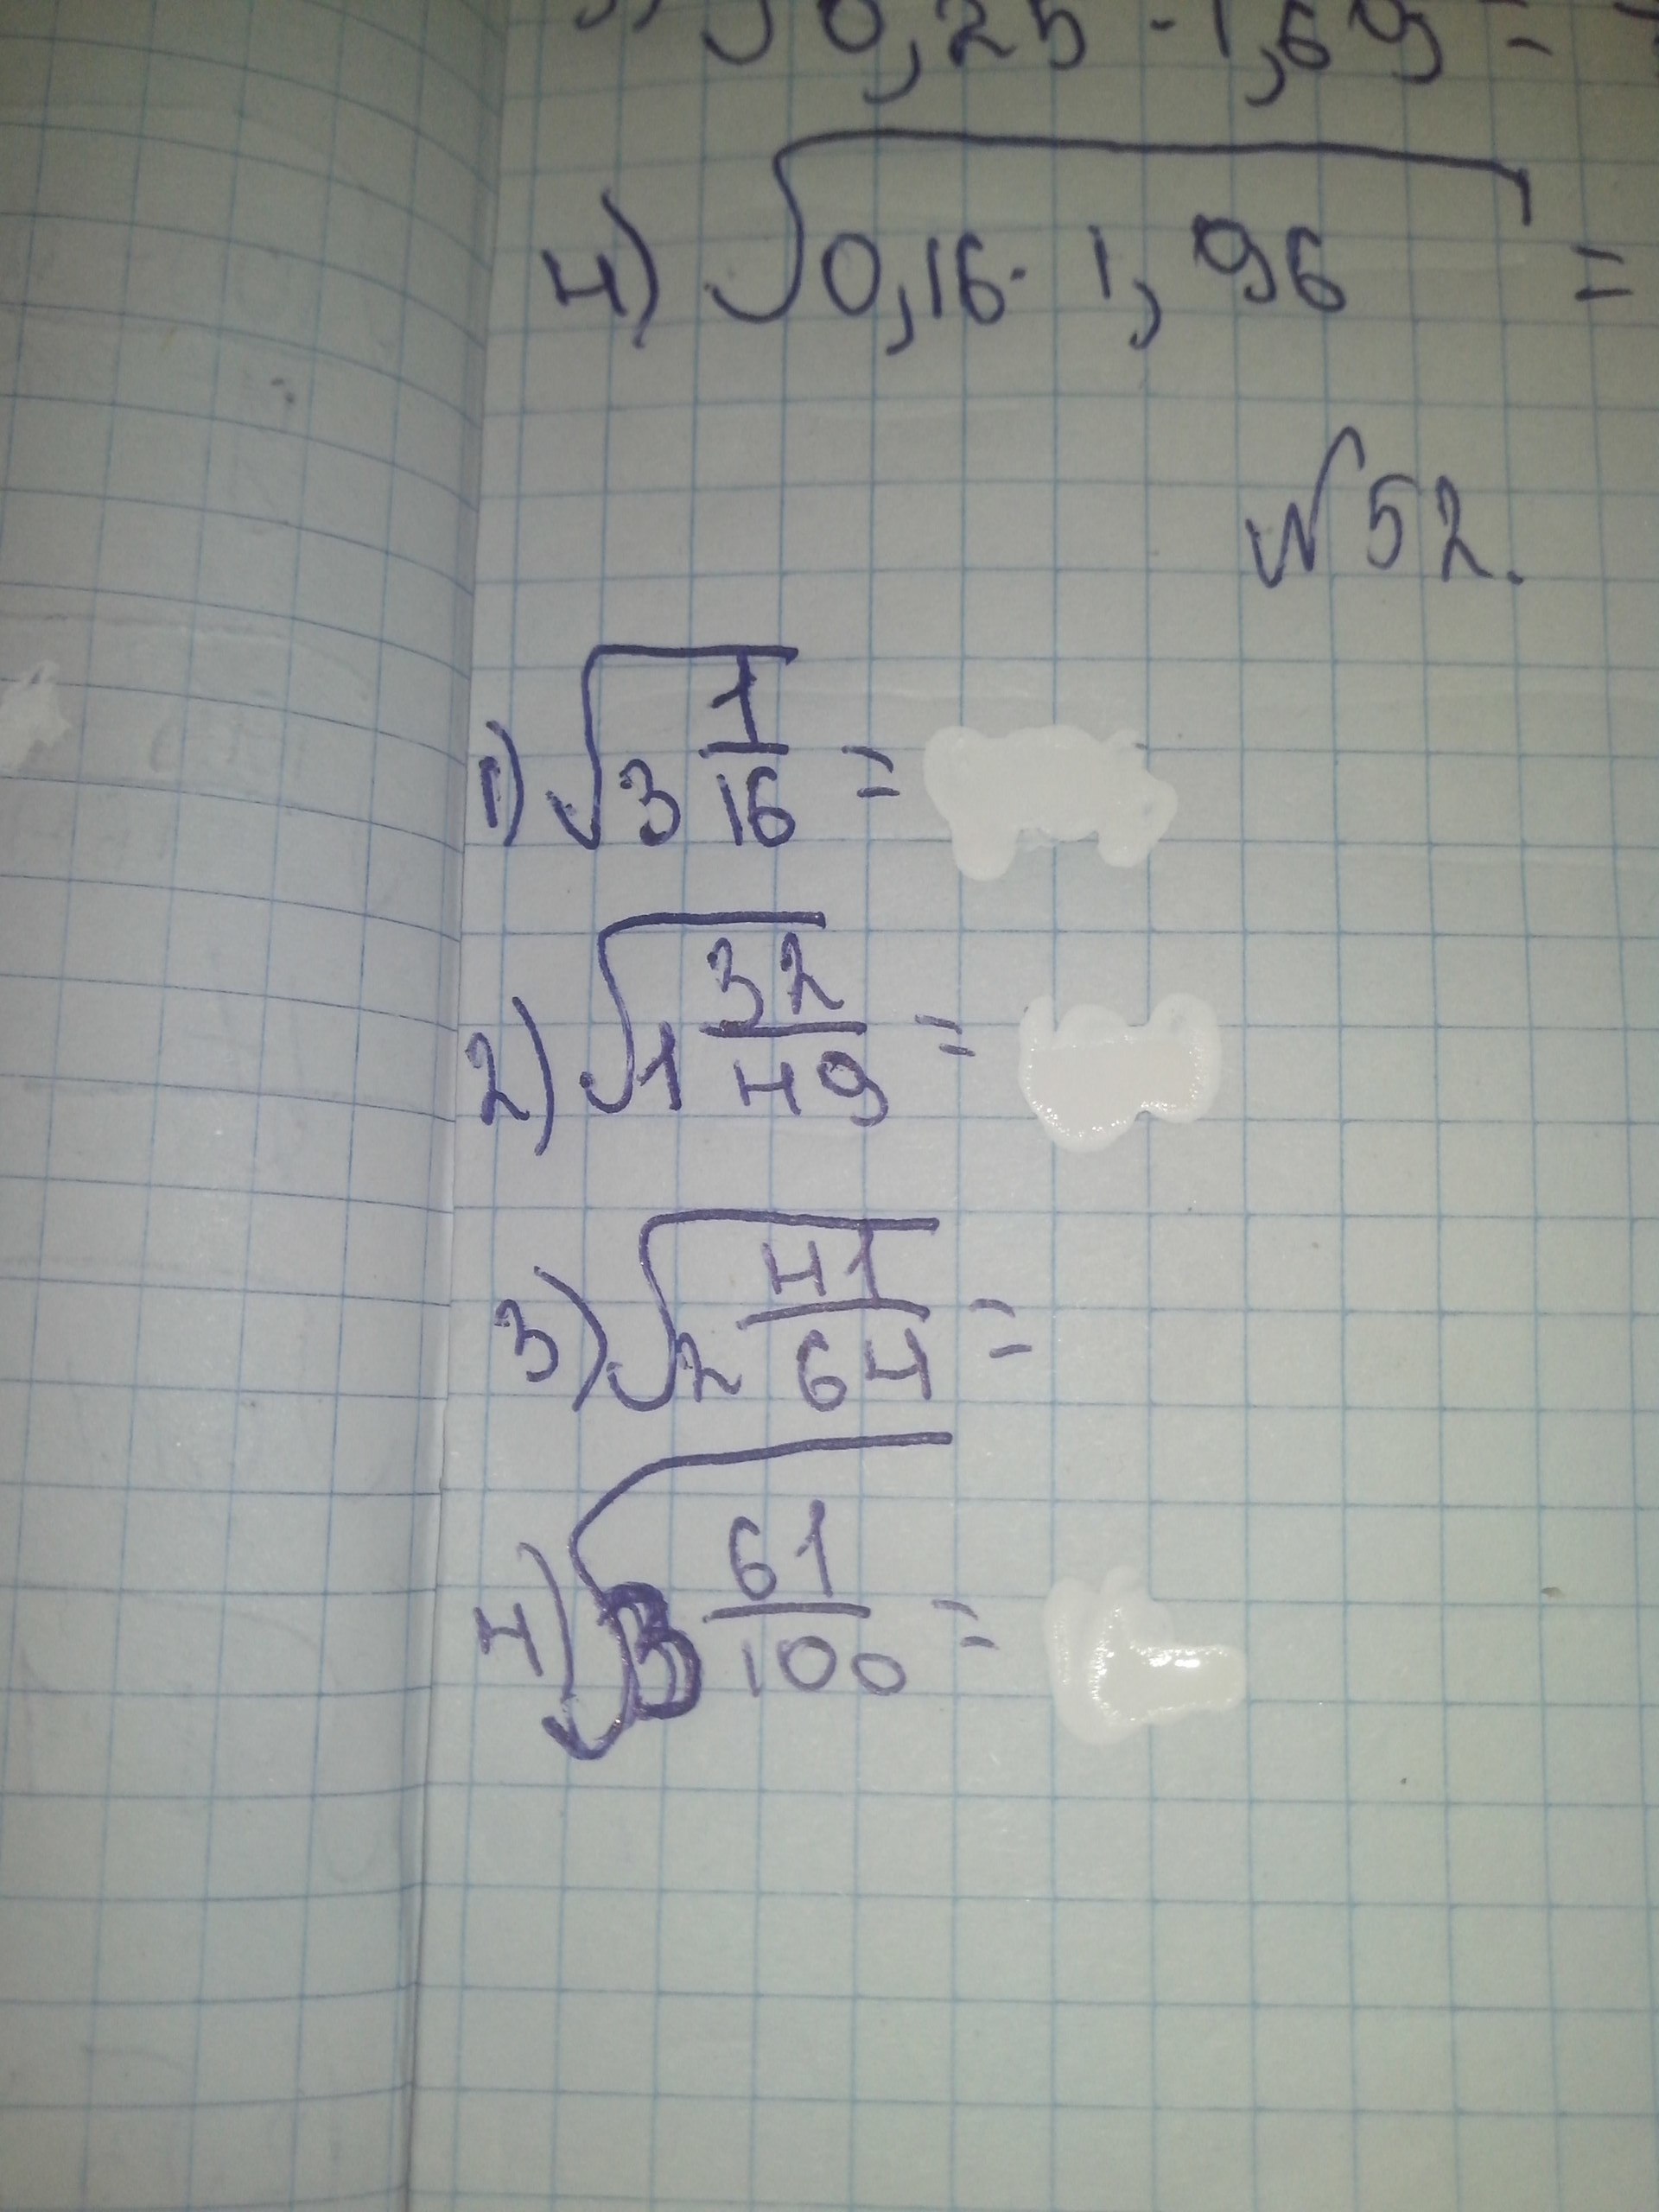 √0,25 · 1,69 =
4) √0,16 · 1,96 =
№ 52.
1) √3 1/16 =
2) √1 32/49 =
3) √2 41/64 =
4) √3 61/100 =